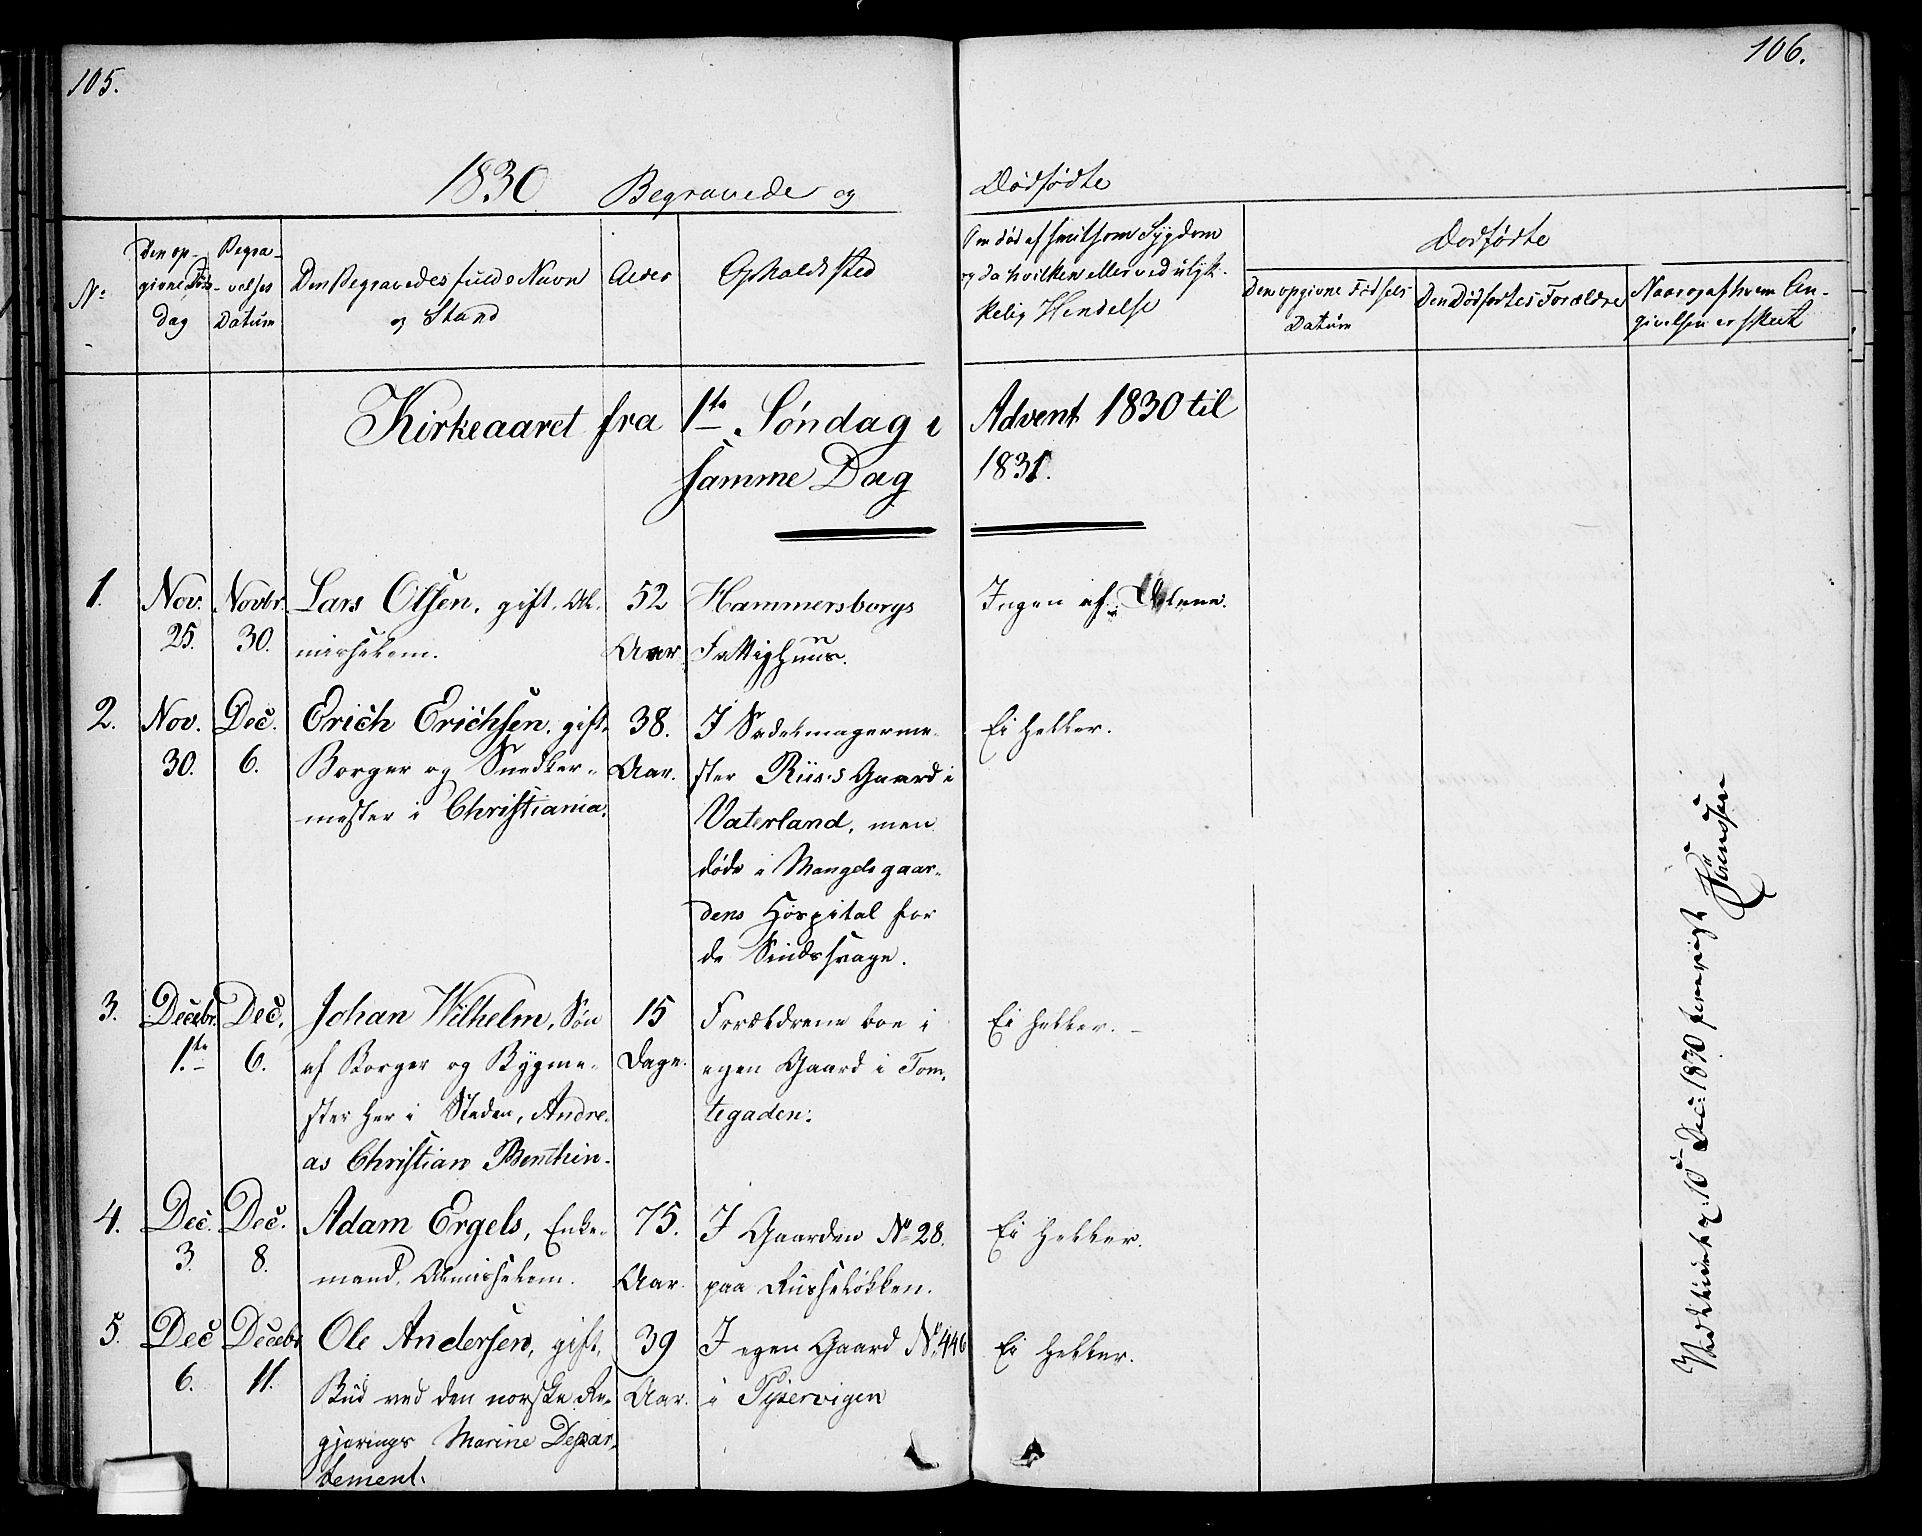 105.
106.
1830 Begravede og
Dødfødte
No
Den op-
givne Døds
dag
Begra-
velses
Datum
Den Begravedes fulde Navn
og Stand
Alder
Opholdssted
Om død af smitsom Sygdom
og da hvilken eller ved ulyk-
kelig Hendelse
Dødfødte
Den opgivne Fødsels
Datum
Den Dødfødtes Forældre
Naar og af hvem An-
givelsen er skeet
Kirkeaaret fra 1te Søndag i Advent 1830 til
samme Dag 1831.
1.
Nov.
25.
Novbr.
30.
Lars Olsen, gift, Al-
misselem.
52
Aar
Hammersborgs
Fattighuus.
Ingen af Delene.
2.
Nov.
30.
Dec.
6.
Erich Erichsen, gift,
Borger og Snedker-
mester i Christiania.
38.
Aar.
I Sadelmagerme-
ster Riis's Gaard i
Vaterland, men
døde i Mangelsgaar-
dens Hospital for
de Sindssvage.
Ei heller.
3.
Decebr.
1.te
Dec.
6.
Johan Wilhelm, Søn
af Borger og Bygme-
ster her i Staden, Andre-
as Christian Benthin.
15
Dage.
Forældrene boe i
egen Gaard i Tom-
tegaden.
Ei heller. -
4.
Dec.
3.
Dec.
8.
Adam Ergels, Enke-
mand, Almisselem.
75.
Aar.
I Gaarden No 28.
paa Russeløkken.
Ei heller.
5.
Dec
6.
Decebr
11.
Ole Andersen, gift,
Bud ved den norske Re-
gjerings Marine Depar-
tement.
39
Aar.
I egen Gaard No 446
i Pipervigen
Ei heller.
10de Dec: 1830 foreviist